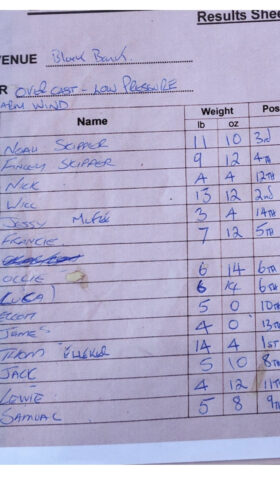 Results Shee
VENUE Blank Bank
R OVER CAST - LOW PRESSURE
ARM WIND
Name Weight Pos
lb oz
NOAH SKIPPER 11 10 3rd
FINLEY SKIPPER 9 12 4TH
NICK 4 4 12TH
WILL 13 12 2nd
JESSY 3 4 14TH
FRANCIE 7 12 5TH
OLLIE 6 14 6TH
LUKA) 6 14 6TH
5 0 10TH
JAMES 4 0 13TH
THOM 14 4 1ST
JACK 5 10 8TH
LEWIE 4 12 11TH
SAMUAL 5 8 9TH